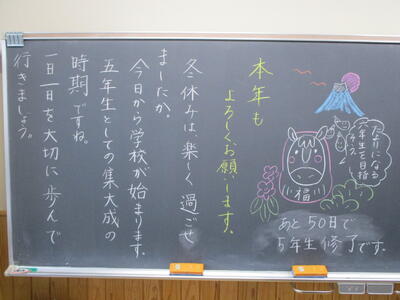 本年も
よろしくお願いします。
冬休みは、楽しく過ごせ
ましたか。
今日から学校が始まります。
五年生としての集大成の
時期ですね。
一日一日を大切に歩んで
行きましょう。
たよりになる
六年生を目指
福
あと50日で
5年生修了です。